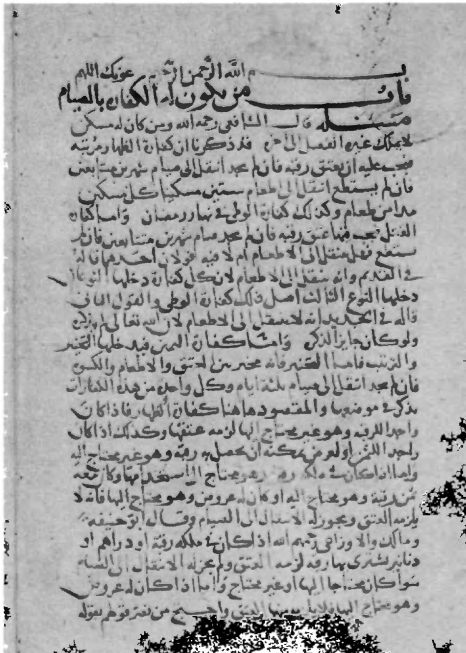 بسم الله الرحمن الرحيم عونك اللهم
باب من يكون له الكفارة بالصيام
مسئلة قال الشافعي رحمه الله ومن كان له مسكن
لا يملك غيره الفصل الى اخره قد ذكرنا ان كفارة الظهار مرتبة
فيجب عليه ان يعتق رقبة فان لم يجد انتقل الى صيام شهرين متتابعين
فان لم يستطع انتقل الى اطعام ستين مسكينا كل مسكين
مدا من طعام وكذلك كفارة الوطي في نهار رمضان واما كفارة
القتل فيجب فيها عتق رقبة فان لم يجد صيام شهرين متتابعين فان لم
يستطع فهل ينتقل الى الاطعام ام لا فيه قولان احدهما قاله
في القديم وانه ينتقل الى الاطعام لان كل كفارة دخلها النوعان
دخلها النوع الثالث اصل ذلك كفارة الوطي والقول الثاني
قاله في الجديد انه لا ينتقل الى الاطعام لان الله تعالى لم يذكره
ولو كان جايز الذكره واما كفارة اليمين فيدخلها التخيير
والترتيب فاما التخيير فانه مخير بين العتق والاطعام والكسوة
فان لم يجد انتقل الى صيام ثلثة ايام وكل واحدة من هذه الكفارات
يذكر في موضعها والمقصود هاهنا كفارة الظهار فاذا كان
واجدا للرقبة وهو غير محتاج اليها لزمه عتقها وكذلك اذا كان
واجد الثمن او لعرض يمكنه ان يحصل به رقبة وهو غير محتاج اليه
واما اذا كان في ملكه رقبة وهو محتاج الى استخدامها وكان معه
ثمن رقبة وهو محتاج اليه او كان له عروض وهو محتاج اليها فانه لا
يلزمه العتق ويجوز له الانتقال الى الصيام وقال ابو حنيفة
ومالك والاوزاعي رحمهم الله اذا كان في ملكه رقبة او دراهم او
دنانير يشتري بها رقبة لزمه العتق ولم يجز له الانتقال الى الصيام
سوا كان محتاجا اليها او غير محتاج واما اذا كان له عروض
وهو محتاج اليها فلا يلزمه العتق واحتج من نصر قولهم بقوله